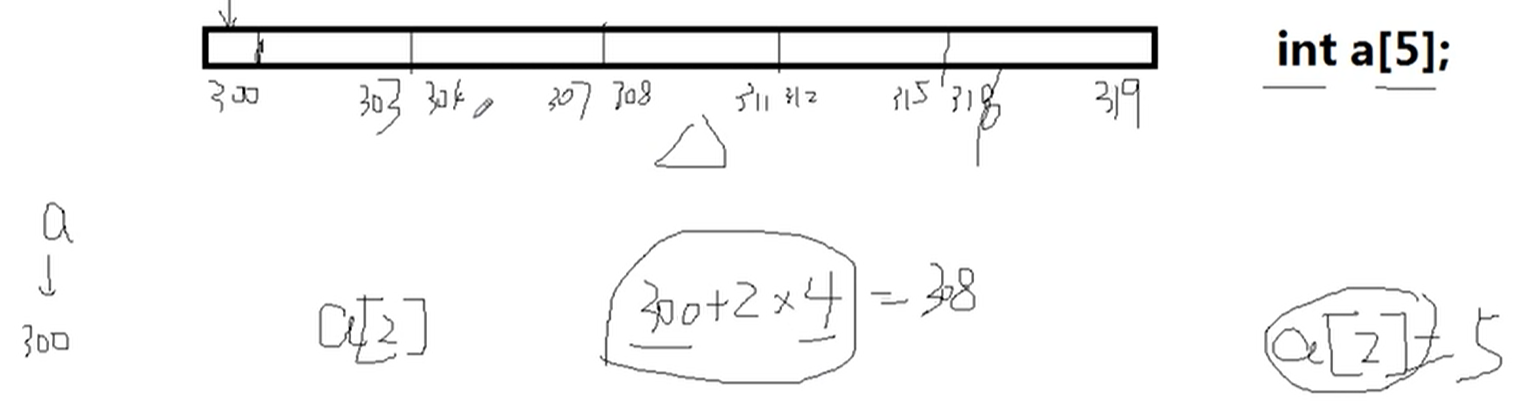 int a[5];
300 303 304 307 308 311 312 315 318 319
a
300
a[2]
300+2×4=308
a[2]=5